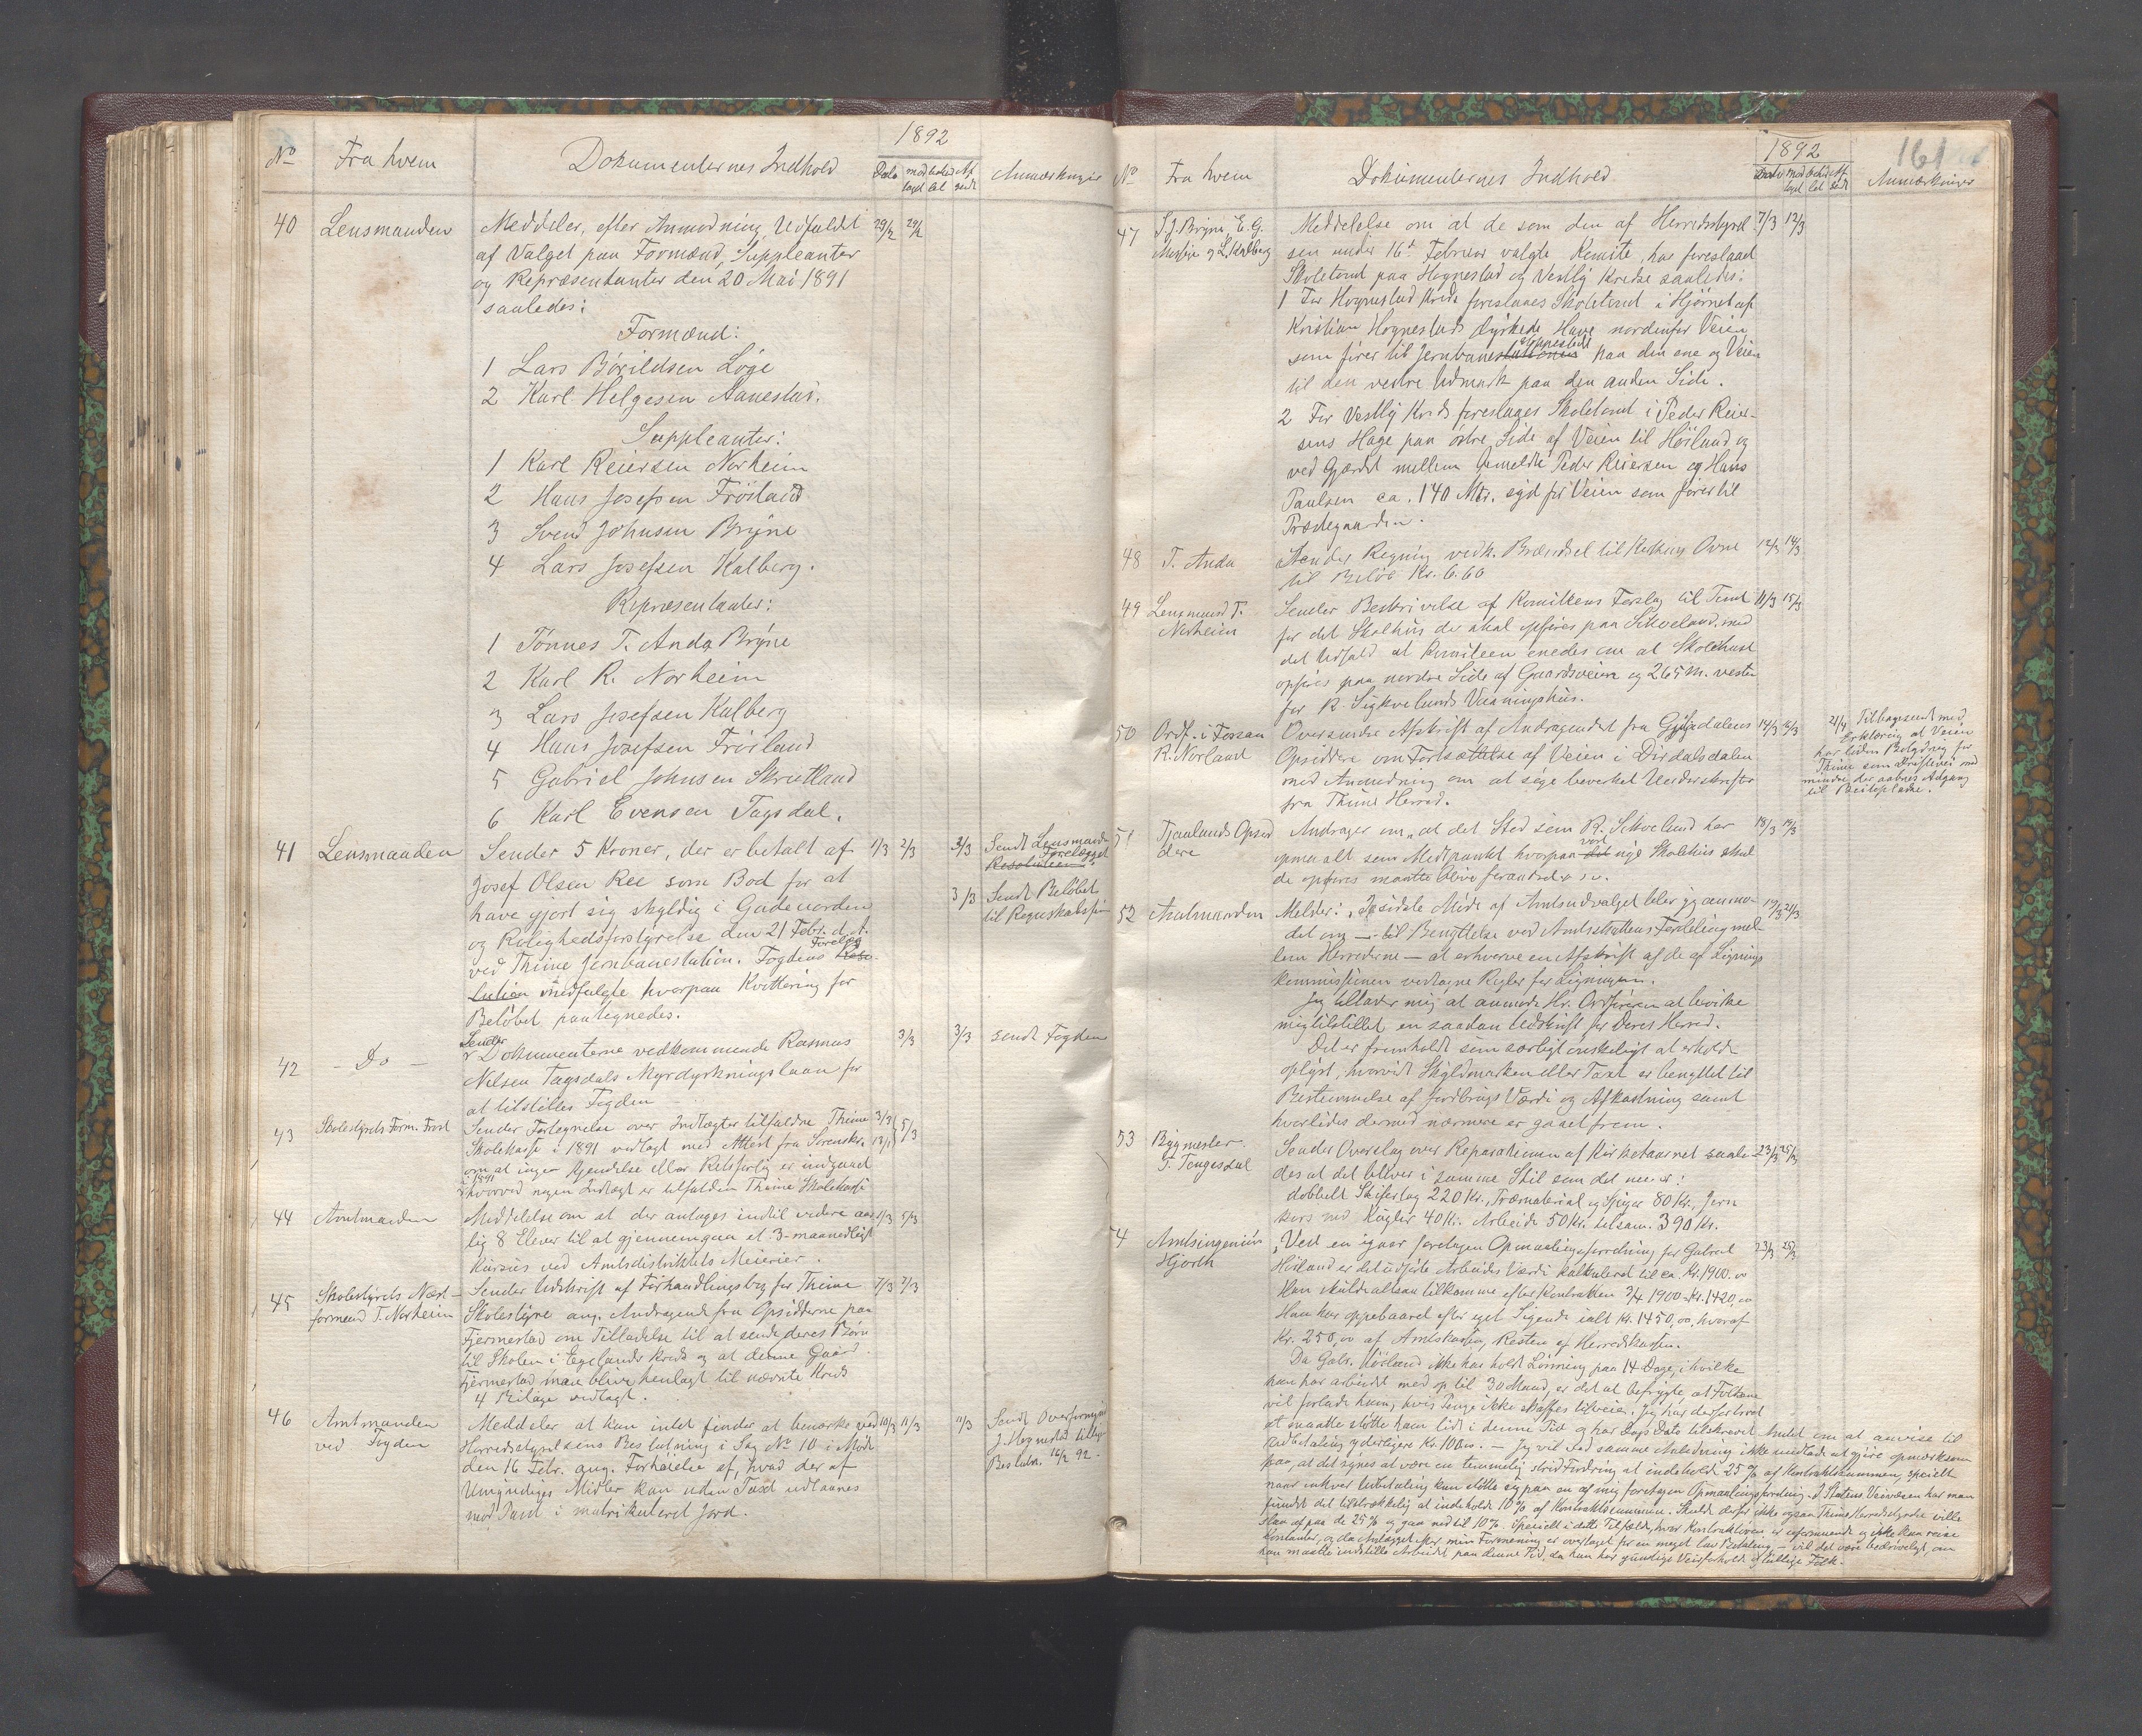 1892
No Fra hvem Dokumenternes Indhold Dato mod taget besva ret Af sendt Anmærkninger
40 Lensmanden Meddeler, efter Anmodning, Udfaldet 29/2 29/2
af Valget paa Formænd, Suppleanter
og Repræsentanter den 20 Mai 1891
saaledes:
Formænd:
1 Lars Bórildsen Lóge
2 Karl Helgesen Aanestad.
Suppleanter:
1 Karl Reiersen Norheim
2 Hans Josefsen Fróiland
3 Svend Johnsen Bryne
4 Lars Josefsen Kalberg.
Repræsentanter:
1 Tónnes T. Anda Bryne
2 Karl R. Norheim
3 Lars Josefsen Kalberg
4 Hans Josefsen Fróiland
5 Gabriel Johnsen Skrutland
6 Karl Evensen Tagsdal.
41 Lensmanden Sender 5 Kroner, der er betalt af 1/3 2/3 3/3 Sendt Lensmanden
Forelægget
Resolutionen
Josef Olsen Ree som Bod for at 3/3 Sendt Belóbet
have gjort sig skyldig i Gadeuorden til Regnskabsfør
og Rolighedsforstyrrelse den 21 Febr. d. A.
ved Thime Jernbanestation. Fogdens Forelæg Reso-
lution medfulgte hvorpaa Kvittering for
Belóbet paategnedes.
42 - Do - Sender Dokumenterne vedkommende Rasmus 3/3 3/3 sendt Fogden
Nelsen Tagsdals Myrdyrkningslaan for
at tilstilles Fogden
43 Skolestyrets Form. Frost Sender Fortegnelse over Indtægter tilfaldne Thime 3/3 5/3
Skolekasse i 1891 vedlagt med Attest fra Sorenskr. 13/1
om at ingen Kjendelse eller Retsforlig er indgaaet
i 1891
hvorved nogen Indtægt er tilfalden Thime Skolekasse
44 Amtmanden Meddelelse om at der antages indtil videre aar- 1/3 5/3
lig 8 Elever til at gjennemgaa et 3-maanedligt
Kursus ved Amtsdistriktets Meierier.
45 Skolestyrets Næst- Sender Udskrift af Forhandlingsbog for Thime 7/3 7/3
formand T. Norheim Skolestyre ang. Andragende fra Opsidderne paa
Fjermestad om Tilladelse til at sende deres Børn
til Skolen i Egelands Kreds og at denne Gaard
Fjermestad maa blive henlagt til nævnte Kreds
4 Bilage vedlagt.
46 Amtmanden Meddeler at han intet finder at bemærke ved 10/3 11/3 11/3 Sendt Overformynd
ved Fogden Herredsstyrelsens Beslutning i Sag No 10 i Móde J. Hognestad tillige
den 16 Febr. ang. Forhóielse af, hvad der af Beslutn. 16/2 92.
Umyndiges Midler kan uden Taxt udlaanes
mod Pant i matrikuleret Jord.
1892
161
No Fra hvem Dokumenternes Indhold Dato mod taget besva ret Af sendt Anmærkninger
47 S. J. Bryne, E. G. Meddelelse om at de som den af Herredsstyrel- 7/3 12/3
Mossige og L. Kalberg sen under 16de Februar valgte Komite, har foreslaaet
Skoletomt paa Hognestad og Vestly Kredse saaledes:
1 For Hognestad Kreds foreslaaes Skoletomt i Hjørnet af
Kristian Hognestads dyrkede Have nordenfor Veien
som fører til Jernbanestationen stoppested paa den ene og Veien
til den vestre Udmark paa den anden Side.
2 For Vestly Kreds foreslaaes Skoletomt i Peder Reier-
sens Hage paa østre Side af Veien til Hóiland og
ved Gjærdet mellem bemeldte Peder Reiersen og Hans
Paulsen ca. 140 Mtr. syd for Veien som fører til
Prædegaarden.
48 T. Anda Sender Regning vedk. Brændsel til Kirkens Ovne 12/3 14/3
til Beløb Kr. 6.60
49 Lensmand T. Sender Beskrivelse af Komiteens Forslag til Tomt 11/3 15/3
Norheim for det Skolhus der skal opføres paa Sikveland, med
det Udfald at Komiteen enedes om at Skolehuset
opføres paa nordre Side af Gaardsveien og 265 m. vesten
for R. Sigkvelands Vaaningshus.
50 Ordf. i Forsan Oversender Afskrift af Andragendet fra Gjesdalens 14/3 16/3 21/4 Tilbagesendt med
R. Norland Opsiddere om Fortsættelse af Veien i Dirdalsdalen Erklæring at Veien
med Anmodning om at søge bevirket Underskrifter har liden Betydning for
fra Thime Herred. Thime som Driftsvei med
mindre der aabnes Adgang
til Beitepladse.
51 Tjaalands Opsid Andrager om „at det Sted som R. Sikveland har 18/3 19/3
dere opmaalt som Midtpunktet hvorpaa det vort nye Skolehus skul-
de opføres maatte blive forandret o. s. v.
52 Amtmanden Melder: I sidste Móde af Amtsudvalget blev jeg anmo- 19/3 24/3
det om — til Benyttelse ved Amtsskattens Fordeling mel-
lem Herrederne — at erhverve en Afskrift af de af Lignings
kommissionen vedtagne Regler for Ligningen.
Jeg tillader mig at anmode Hr. Ordføreren at bevirke
mig tilstillet en saadan Udskrift for Deres Herred.
Det er fremholdt som særligt ønskeligt at erholde
oplyst, hvorvidt Skyldmarken eller Taxt er benyttet til
Bestemmelse af Jordbrugs Værdi og Afkastning samt
hvorledes dermed nærmere er gaaet frem.
53 Bygmester Sender Overslag over Reparationen af Kirketaarnet saale- 23/3 25/3
T. Tengesdal des at det bliver i samme Stil som det nu er:
dobbelt Skiferlag 220 Kr., Træmaterial og Spiger 80 Kr., Jern
kors med Kugler 40 Kr. Arbeide 50 Kr. tilsam. 390 Kr.
54 Amtsingeniør „Ved en igaar foretagen Opmaalingsforretning for Gabriel 23/3 25/3
Hjorth Hóiland er det udførte Arbeides Værdi kalkuleret til ca. Kr. 1900.00
Han skulde altsaa tilkomme efter Kontrakten 3/4 1900 = Kr. 1420,00
Han har oppebaaret efter eget Sigende ialt Kr. 1450,00, hvoraf
Kr. 250,00 af Amtskassen, Resten af Herredskassen.
Da Gabr. Hóiland ikke har holdt Lønning paa 14 Dage, i hvilke
han har arbeidet med op til 30 Mand, er det at befrygte at Folkene
vil forlade ham, hvis Penge ikke skaffes tilveie. Jeg har derfor lovet
at maatte støtte ham lidt i denne Tid og har Dags Dato tilskrevet Amtet om at anvise til
Udbetaling yderligere Kr. 100.00. — Jeg vil ved samme Anledning ikke undlade at gjøre opmærksom
paa, at det synes at være en temmelig strid Fordring at indeholde 25 % af Kontraktsummen, specielt
naar enhver Udbetaling kan støtte sig paa en af mig foretagen Opmaalingsforretning. I Statens Veivæsen har man
fundet det tilstrækkelig at indeholde 10 % af Kontraktsummen. Skulde derfor ikke ogsaa Thime Herredsstyrelse ville
slaa af paa de 25 % og gaa ned til 10 %. Specielt i dette Tilfælde, hvor Kontraktøren er uformuende og ikke kan reise
Kontanter, og da Anlægget efter min Formening er overtaget for en meget lav Betaling — vil det være bedrøveligt, om
han maatte indstille Arbeidet paa denne Tid, da han har gunstige Veirforholde og billige Folk.